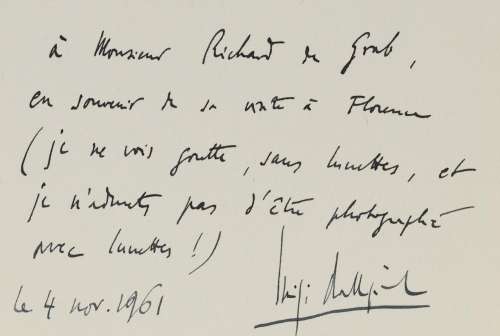 à Monsieur Richard de Grab,
en souvenir de sa visite à Florence
(je ne vois goutte, sans lunettes, et
je n'admets pas d'être photographié
avec lunettes !)
Luigi Dallapiccola
le 4 nov. 1961